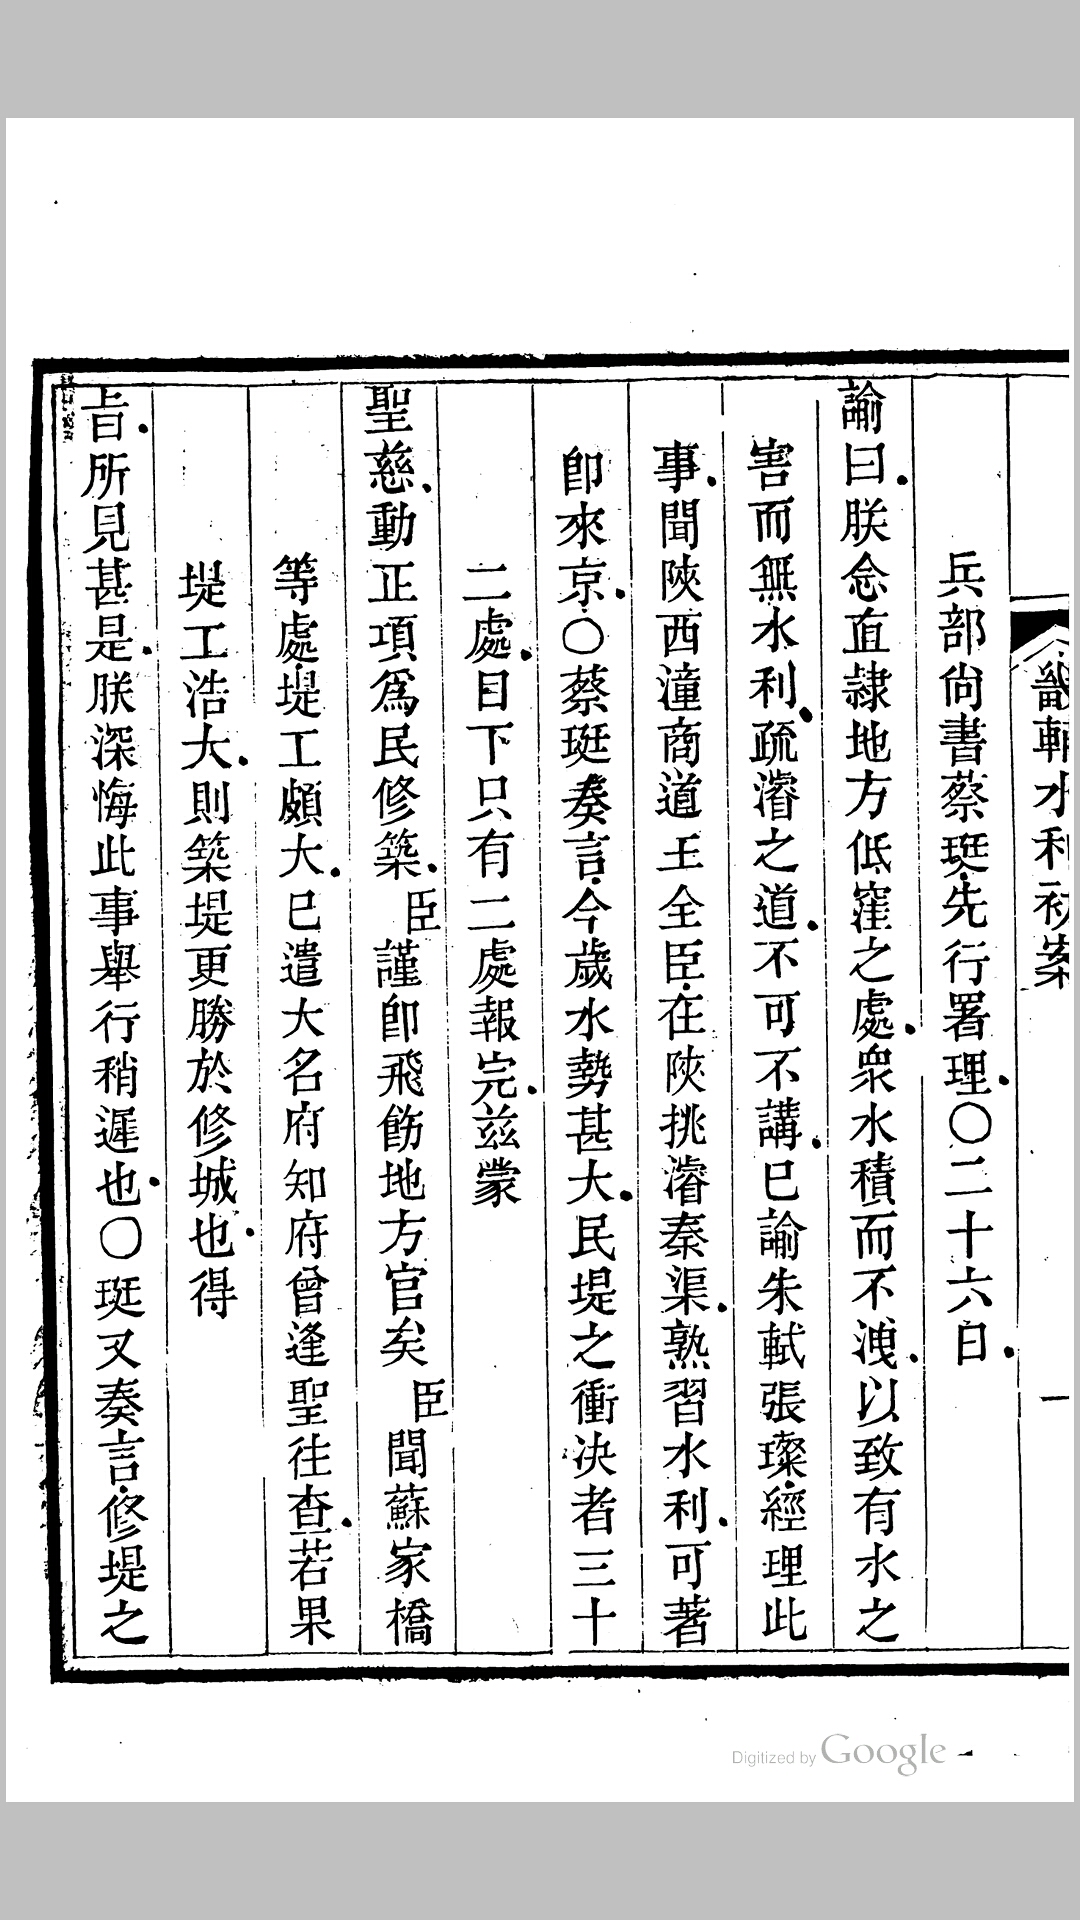 畿輔水利初案
一
兵部尚書蔡珽先行署理〇二十六日
諭曰朕念直隸地方低窪之處衆水積而不洩以致有水之
害而無水利疏濬之道不可不講已諭朱軾張璨經理此
事聞陜西潼商道王全臣在陜挑濬秦渠熟習水利可著
卽來京〇蔡珽奏言今歲水勢甚大民堤之衝決者三十
二處目下只有二處報完兹蒙
聖慈動正項爲民修築臣謹卽飛飭地方官矣臣聞蘇家橋
等處堤工頗大已遣大名府知府曾逢聖往查若果
堤工浩大則築堤更勝於修城也得
旨所見甚是朕深悔此事舉行稍遲也〇珽又奏言修堤之
Digitized by Google